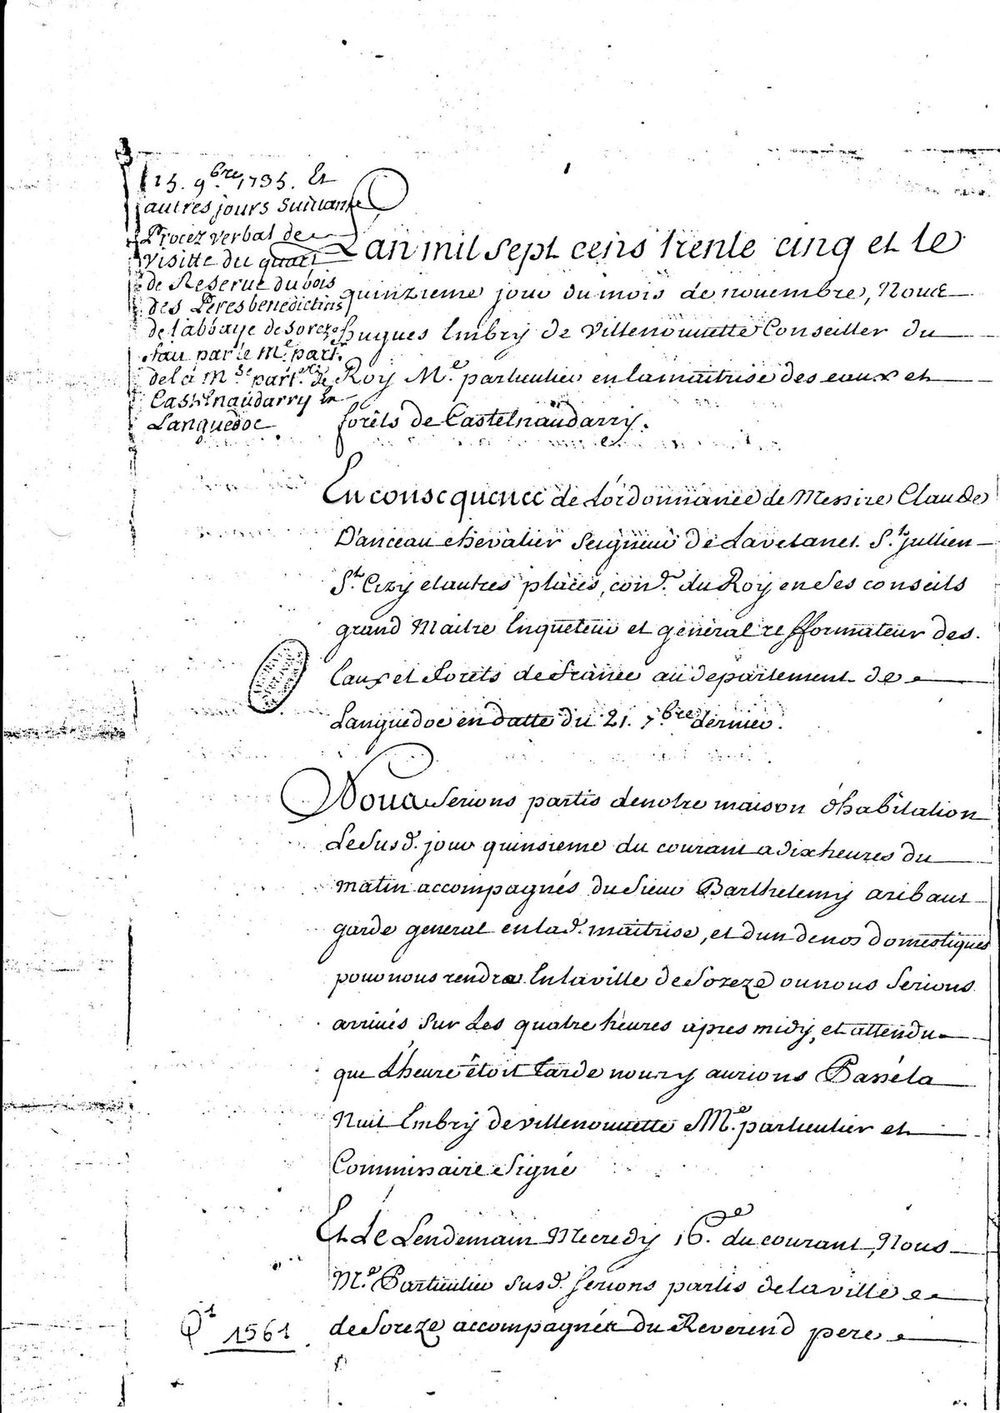 15. 9.bre 1735. Et
autres jours suivans
Procez verbal de
visitte du quart
de Reserve du bois
des Peres benedictins
de l'abbaye de Soreze
fait par le M.e part.
de la M.se part.re de
Castelnaudarry en
Languedoc
Lan mil sept cens trente cinq et le
quinzieme jour du mois de novembre, Nous
hugues Embry de Villenouvette Conseiller du
Roy M.e particulier en la maitrise des eaux et
forêts de Castelnaudarry.
En consequence de L'ordonnance de Messire Claude
D'anceau chevalier Seigneur de Lavelanet. S.t Jullien
S.t Cizy et autres places, con.er du Roy en Ses conseils
grand Maitre Enqueteur et general refformateur des
Eaux et Forets de france au departement de
Languedoc en datte du 21. 7.bre dernier.
Nous Serions partis de notre maison d'habitation
Le Susd. jour quinsieme du courant a dix heures du
matin accompagnés du Sieur Barthelemy aribaut
garde general en lad. maitrise, et d'un de nos domestiques
pour nous rendre En la ville de Soreze ou nous Serions
arrivés Sur Les quatre heures apres midy, et attendu
que L'heure êtoit tarde nous y aurions Passé la
Nuit Embry de villenouvette M.e particulier et
Commissaire Signé
Et Le Lendemain Mecredy 16.e du courant, Nous
M.e Particulier susd. Serions partis de la ville
de Soreze accompagnés du Reverend pere
Q1 1561